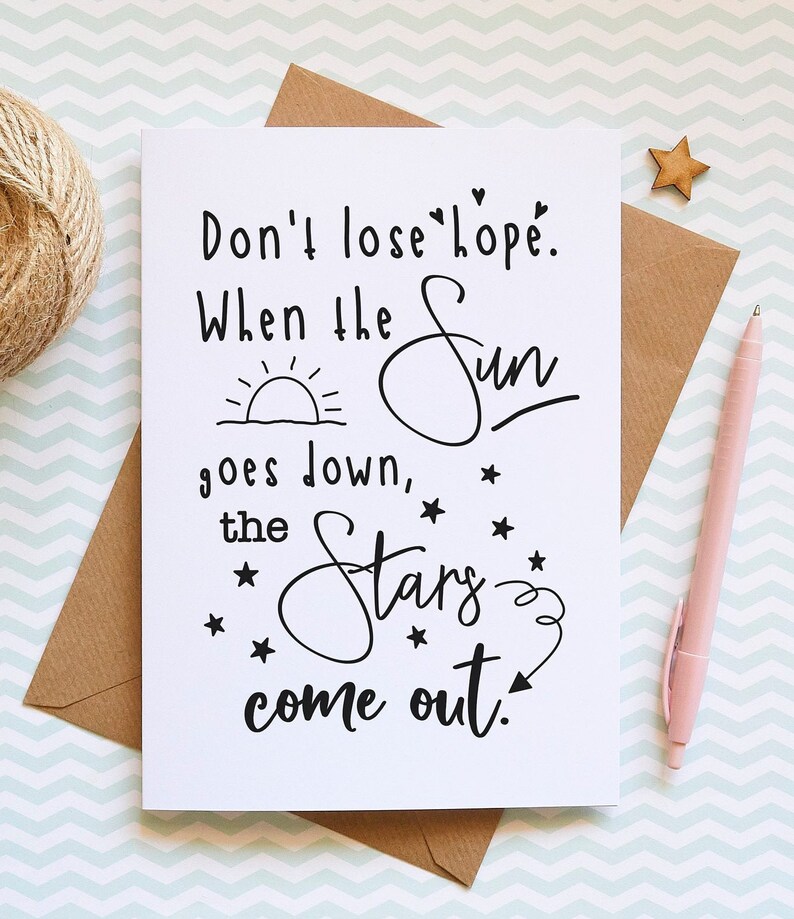 Don't lose hope.
When the Sun
goes down,
the Stars
come out.